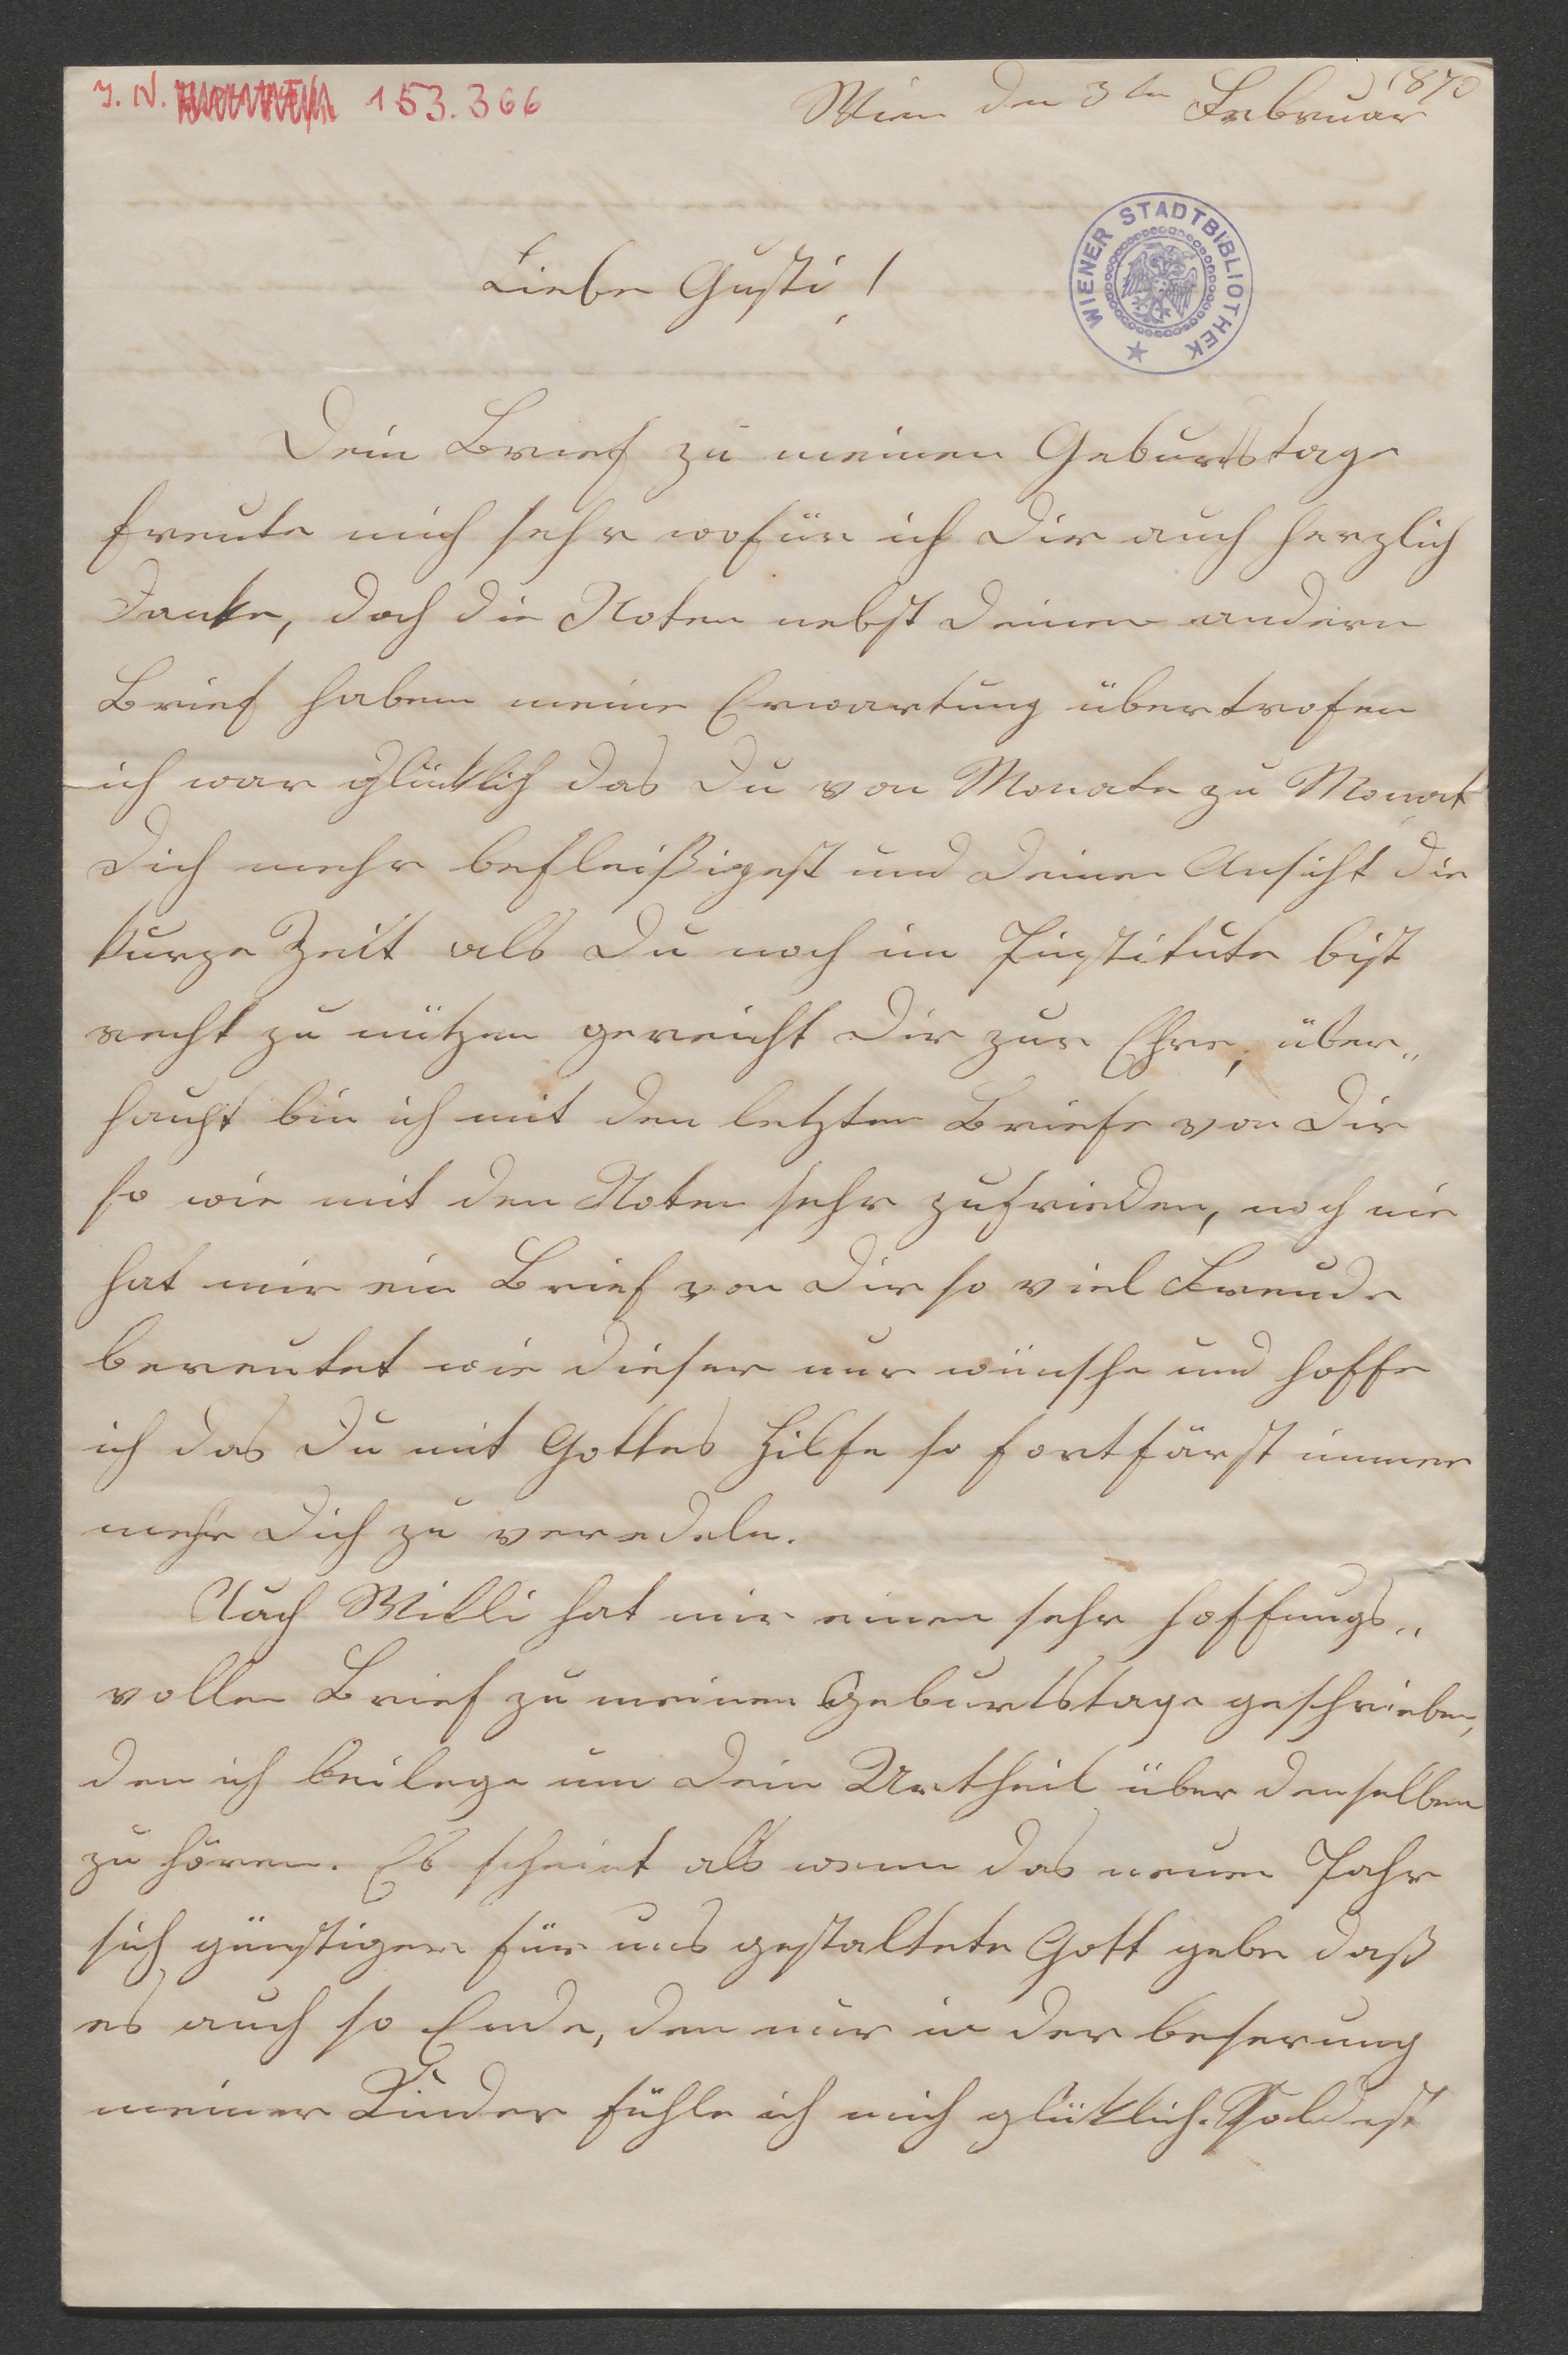 J. N. 153.366
Wien den 3ten Februar 1870
WIENER STADTBIBLIOTHEK
Liebe Gusti!
Dein Brief zu meinen Geburtstage
freute mich sehr wofür ich Dir auch herzlich
Danke, doch die Noten nebst Deinen andern
Brief haben meine Erwartung übertrofen
ich war glücklich das Du von Monate zu Monat
Dich mehr befleißigest und Deine Ansicht die
kurze Zeit als Du noch im Institute bist
recht zu nützen gereicht Dir zur Ehre, über„
haupt bin ich mit den letzten Briefe von Dir
so wie mit den Noten sehr zufrieden, noch nie
hat mir ein Brief von Dir so viel Freude
bereutet wie dieser nur wünsche und hoffe
ich das Du mit Gottes Hilfe so fortfärst immer
mehr Dich zu veredeln.
Auch Willi hat mir einen sehr hoffungs„
vollen Brief zu meinen Geburtstage geschrieben,
den ich beilege um Dein Urtheil über denselben
zu hören. Es scheint als wenn das neue Jahr
sich günstiger für uns gestaltete Gott gebe daß
es auch so Ende, den nur in der beserung
meiner Kinder fühle ich mich glüklich. Soldest